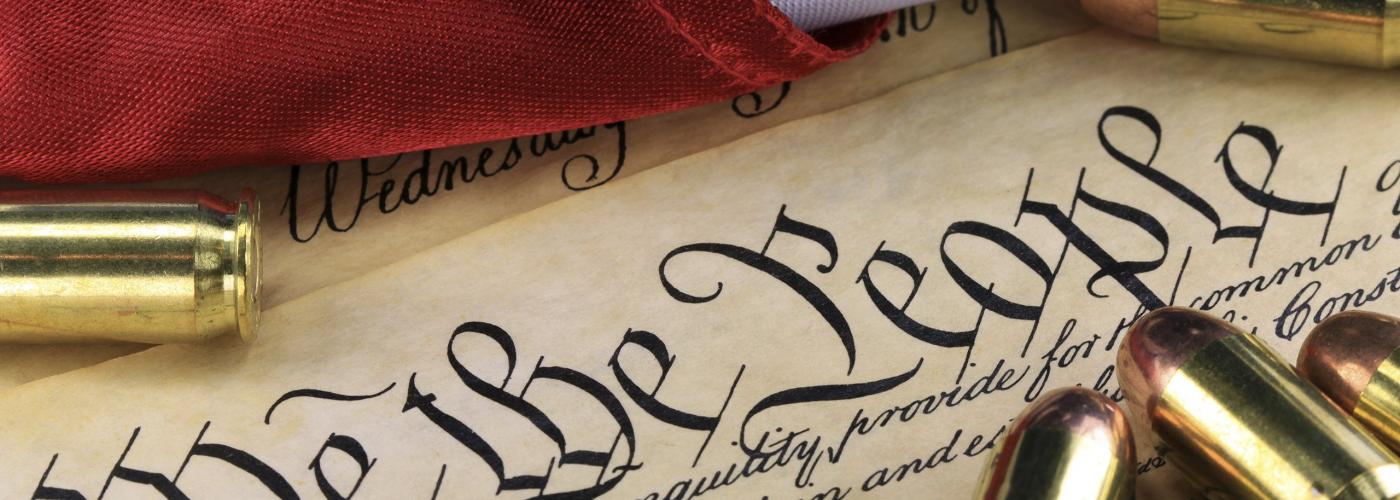 Wednesday
We the People
common
quility, provide for th
Const
and es